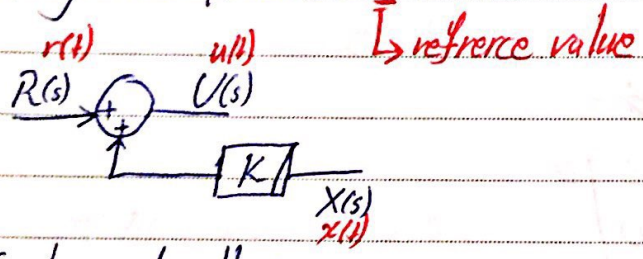 r(t) u(t) ↳ refrerce value
R(s) + U(s)
+
K
X(s)
x(t)